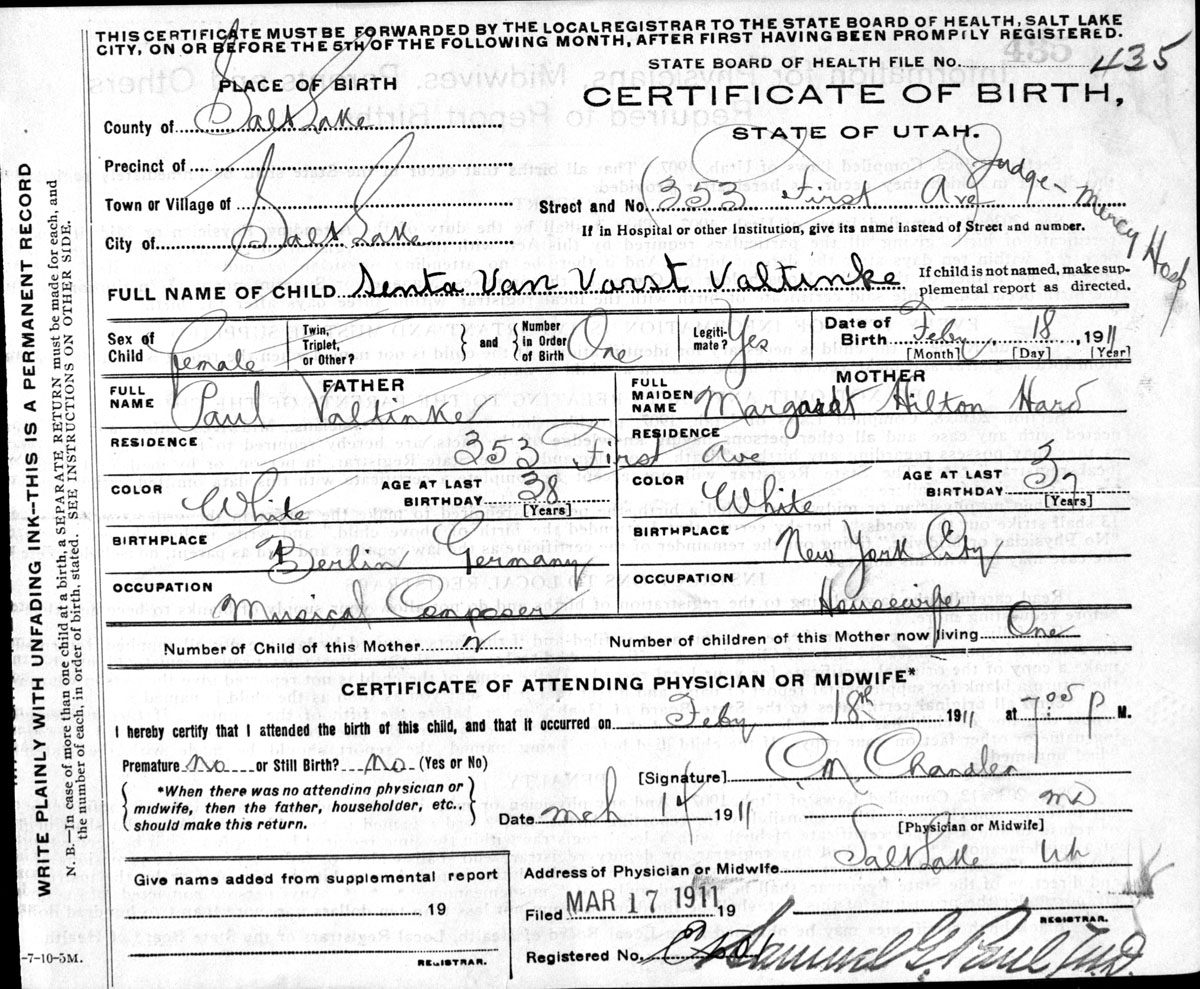 THIS CERTIFICATE MUST BE FORWARDED BY THE LOCALREGISTRAR TO THE STATE BOARD OF HEALTH, SALT LAKE
CITY, ON OR BEFORE THE 5TH OF THE FOLLOWING MONTH, AFTER FIRST HAVING BEEN PROMPILY REGISTERED.
STATE BOARD OF HEALTH FILE No. 435
PLACE OF BIRTH
CERTIFICATE OF BIRTH,
County of Salt Lake
STATE OF UTAH.
Precinct of
Town or Village of
Street and No. 353 First Ave Judge-Mercy Hosp
City of Salt Lake
If in Hospital or other Institution, give its name instead of Street and number.
FULL NAME OF CHILD Senta Van Vorst Valtinke
If child is not named, make sup-
plemental report as directed.
Sex of Child Female
Twin, Triplet, or Other?
and
Number in Order of Birth One
Legiti-mate? Yes
Date of Birth Feby 18, 1911
[Month] [Day] [Year]
FATHER
FULL NAME Paul Valtinke
MOTHER
FULL MAIDEN NAME Margaret Hilton Hard
RESIDENCE 353 First Ave
RESIDENCE
COLOR White
AGE AT LAST BIRTHDAY 38
[Years]
COLOR White
AGE AT LAST BIRTHDAY 37
[Years]
BIRTHPLACE Berlin Germany
BIRTHPLACE New York City
OCCUPATION Musical Composer
OCCUPATION Housewife
Number of Child of this Mother
Number of children of this Mother now living One
CERTIFICATE OF ATTENDING PHYSICIAN OR MIDWIFE*
I hereby certify that I attended the birth of this child, and that it occurred on Feby 18 1911 at P M.
Premature No or Still Birth? No (Yes or No)
*When there was no attending physician or
midwife, then the father, householder, etc.,
should make this return.
[Signature] Chandler
MD
Date Mch 14 1911
[Physician or Midwife]
Give name added from supplemental report
Address of Physician or Midwife Salt Lake Uh
19
Filed MAR 17 1911 19
REGISTRAR.
Registered No.
Samuel G. Paul M.D.
REGISTRAR.
-7-10-5M.
WRITE PLAINLY WITH UNFADING INK--THIS IS A PERMANENT RECORD
N.B.-In case of more than one child at a birth, a SEPARATE RETURN must be made for each, and
the number of each, in order of birth, stated. SEE INSTRUCTIONS ON OTHER SIDE.